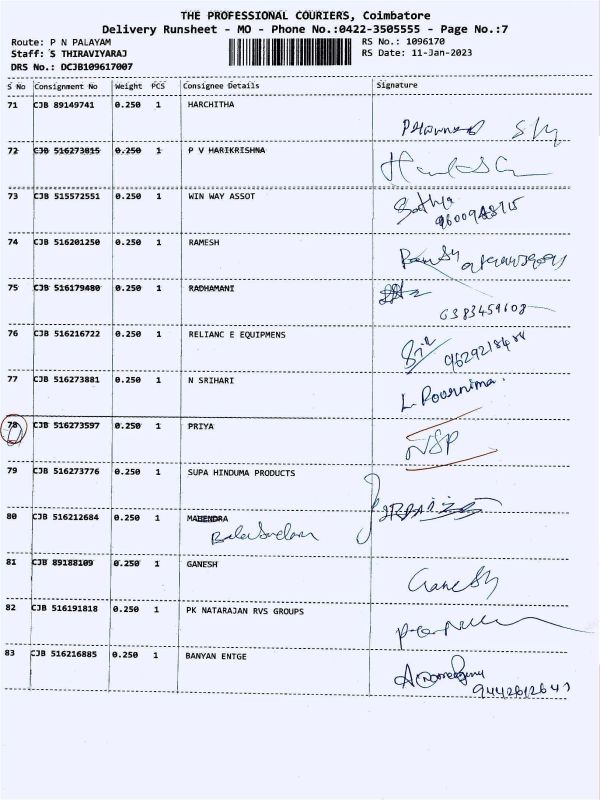 THE PROFESSIONAL COURIERS, Coimbatore
Delivery Runsheet - MO - Phone No.:0422-3505555 - Page No.:7
Route: P N PALAYAM
RS No.: 1096170
Staff: S THIRAVIYARAJ
RS Date: 11-Jan-2023
DRS No.: DCJB109617007
S No Consignment No Weight PCS Consignee Details Signature
71 CJB 89149741 0.250 1 HARCHITHA
72 CJB 516273815 0.250 1 P V HARIKRISHNA
73 CJB 515572551 0.250 1 WIN WAY ASSOT
Sathya
74 CJB 516201250 0.250 1 RAMESH
75 CJB 516179480 0.250 1 RADHAMANI
6383459608
76 CJB 516216722 0.250 1 RELIANC E EQUIPMENS
77 CJB 516273881 0.250 1 N SRIHARI
L. Pournima.
78 CJB 516273597 0.250 1 PRIYA
NSP
79 CJB 516273776 0.250 1 SUPA HINDUMA PRODUCTS
80 CJB 516212684 0.250 1 MAHENDRA
81 CJB 89188109 0.250 1 GANESH
82 CJB 516191818 0.250 1 PK NATARAJAN RVS GROUPS
83 CJB 516216885 0.250 1 BANYAN ENTGE